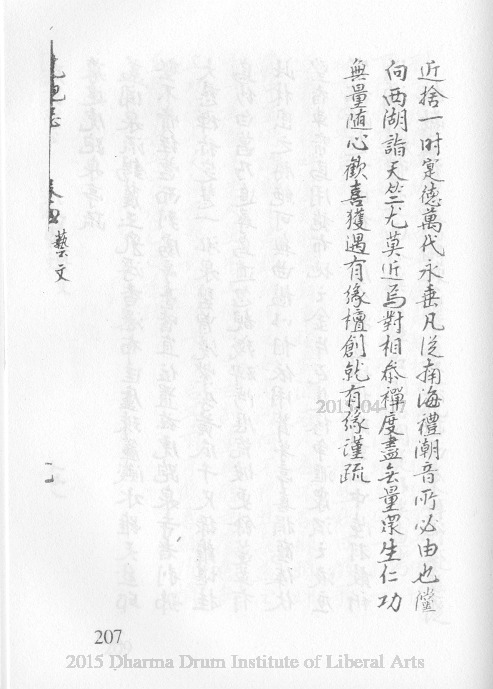 近捨一时寔德萬代永垂凡従南海禮潮音所必由也儻
向西湖詣天竺尤莫近焉對相恭禪度盡无量眾生仁功
無量随心歡喜獲遇有緣檀創就有緣謹疏
藝文
207
2015 Dharma Drum Institute of Liberal Arts